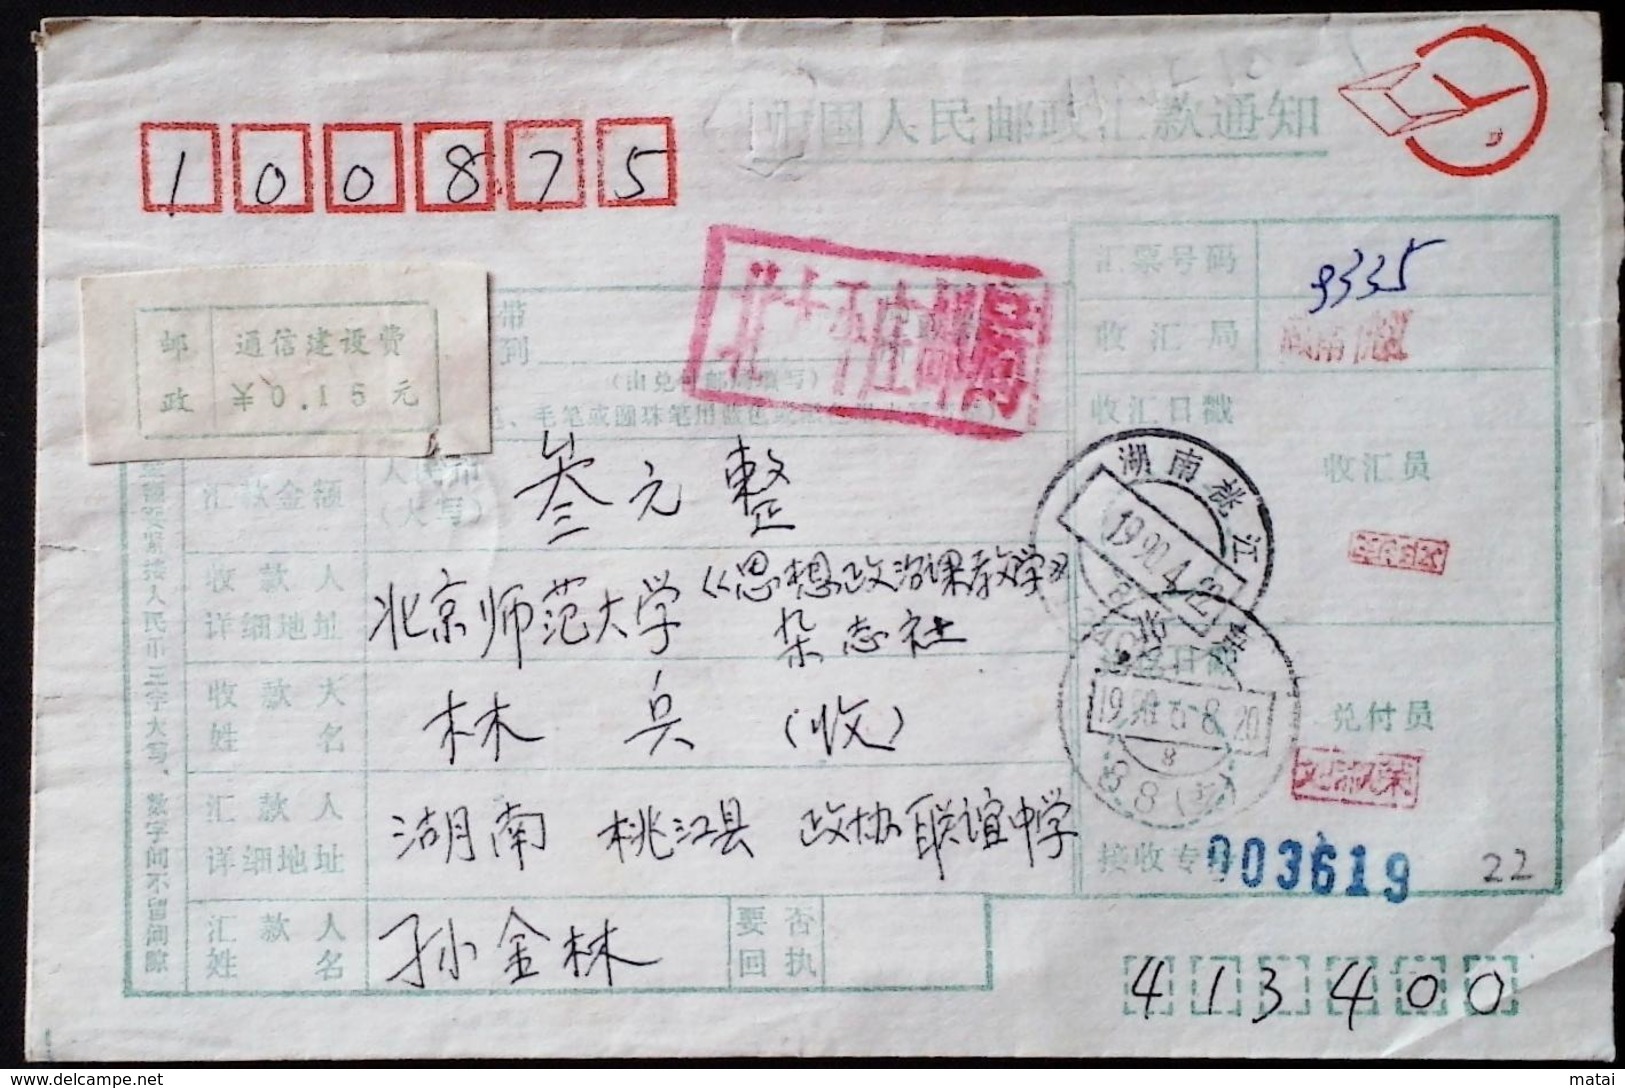 中国人民邮政汇款通知
100875
汇票号码 9335
收汇局
邮政 通信建设费 ¥0.15元
带到
收汇日戳
汇款金额 人民币(大写) 叁元整
收汇员
湖南桃江
1990.4
收款人详细地址 北京师范大学《思想政治课教学》
杂志社
收款人姓名 林兵(收)
兑付员
刘淑荣
汇款人详细地址 湖南 桃江县 政协联谊中学
接收专号 003619
22
汇款人姓名 孙金林
要否回执
413400
delcampe.net
matai